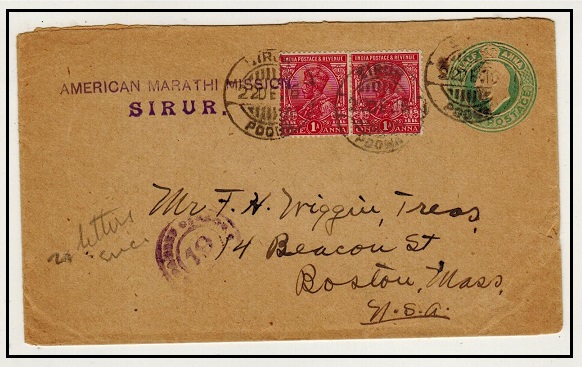 AMERICAN MARATHI MISSION
SIRUR.
INDIA POSTAGE & REVENUE
1A
ONE ANNA
INDIA POSTAGE & REVENUE
1A
ONE ANNA
SIRUR
POONA
SIRUR
POONA
POONA
ANNA
POSTAGE
Mr F. H. Wiggin, Treas
14 Beacon St
Boston, Mass.
U.S.A.
letters
19